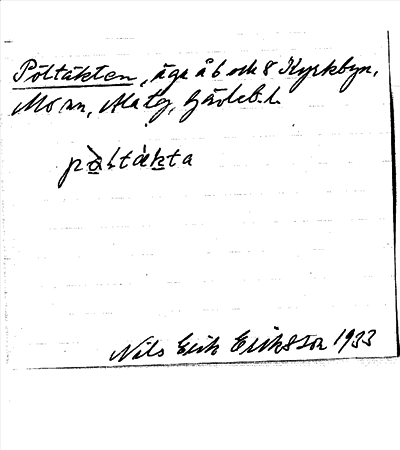 Pöltäkten, äga å 6 och 8 Kyrkbyn,
Mo sn, Ala tg, Gävleb. l.
pàltàkta
Nils Erik Eriksson 1933